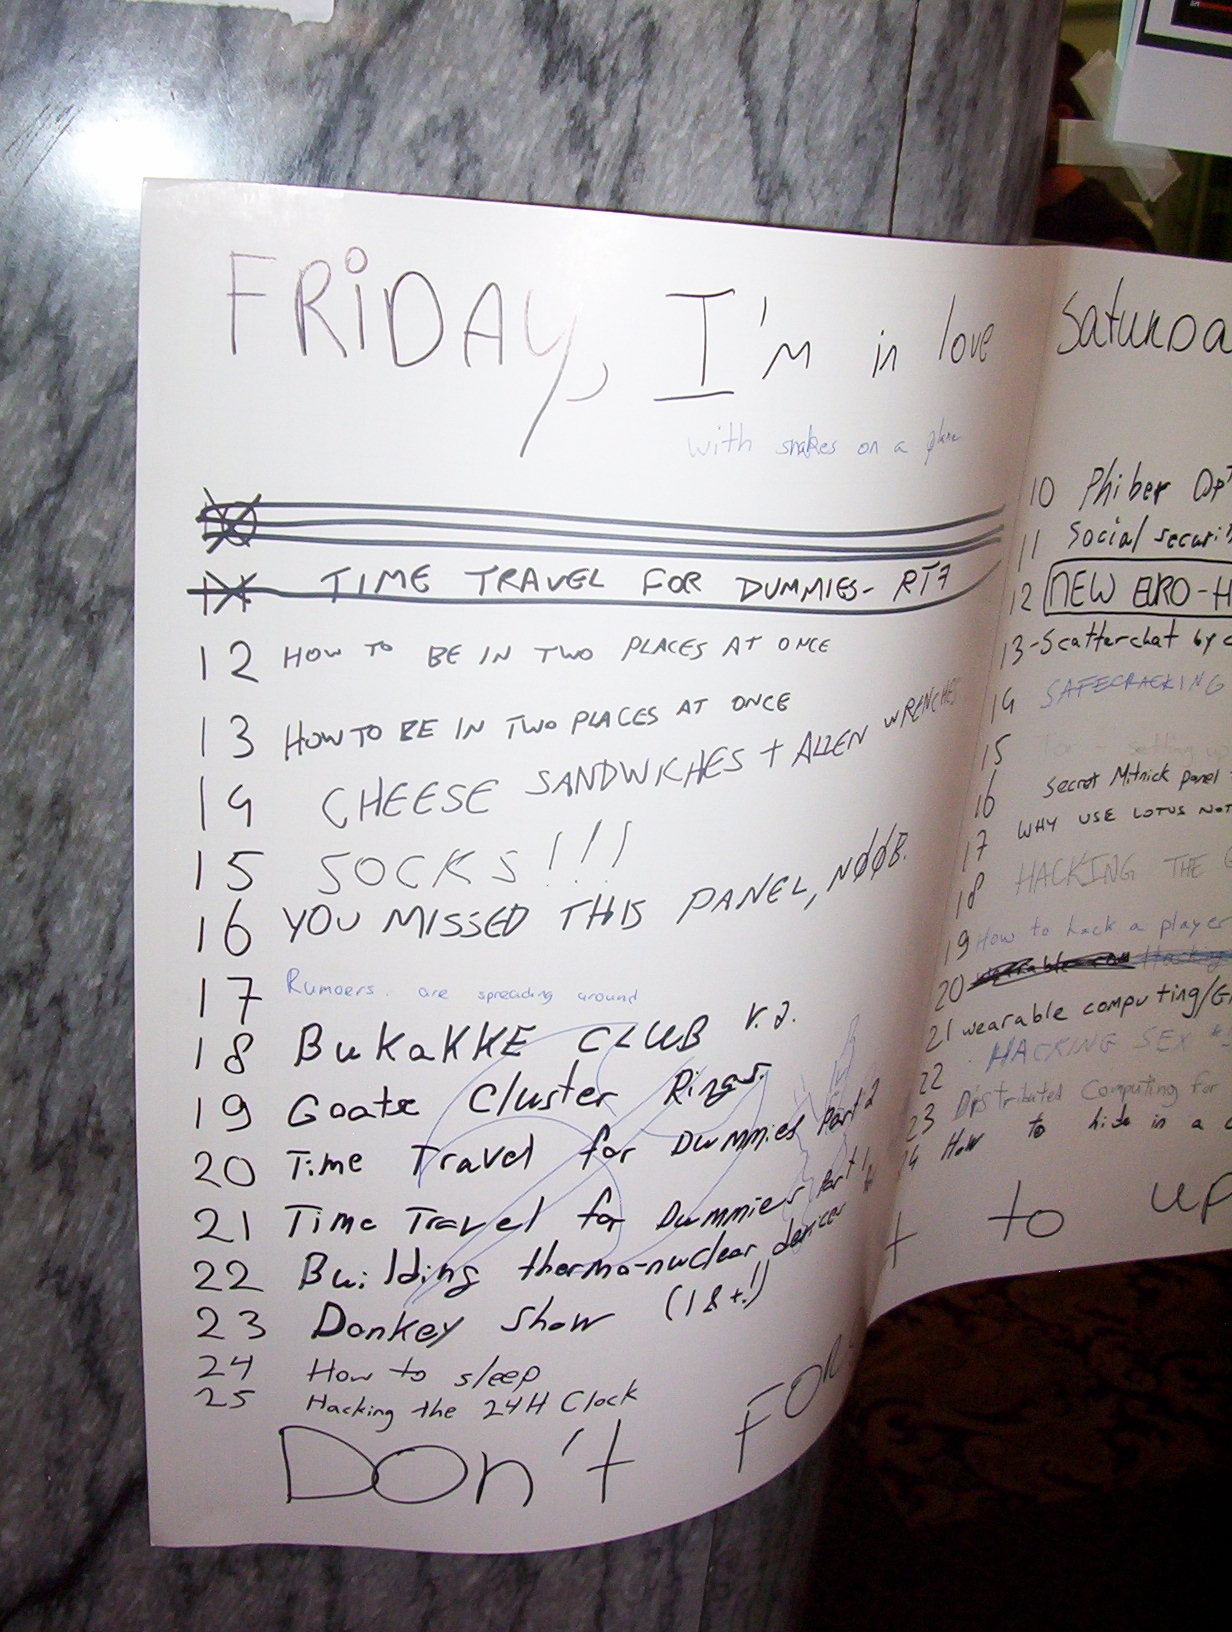 FRiDAY, I'm in love
with snakes on a plane
TIME TRAVEL FOR DUMMIES- RT7
12 HOW TO BE IN TWO PLACES AT ONCE
13 HOW TO BE IN TWO PLACES AT ONCE
14 CHEESE SANDWICHES + ALLEN WRENCHES
15 SOCKS!!!
16 YOU MISSED THIS PANEL, NØØB.
17 Rumoers are spreading around
18 BuKaKKE CLUB r.2.
19 Goatse Cluster Rings.
20 Time Travel for Dummies Part 2
21 Time Travel for Dummies Part 1
22 Building thermo-nuclear devices
23 Donkey Show (18+!)
24 How to sleep
25 Hacking the 24H Clock
DOn't FOR
Saturda
10 Phiber Opt
11 Social securit
12 NEW EURO-H
13-Scatterchat by c
14 SAFECRACKING
15 Tor - setting
16 Secret Mitnick panel
17 WHY USE LOTUS NOT
18 HACKING THE
19 How to hack a player
20 wearable Hacking
21 wearable computing/
22 HACKING SEX
23 Distributed Computing for
24 How to hide in a
t to up